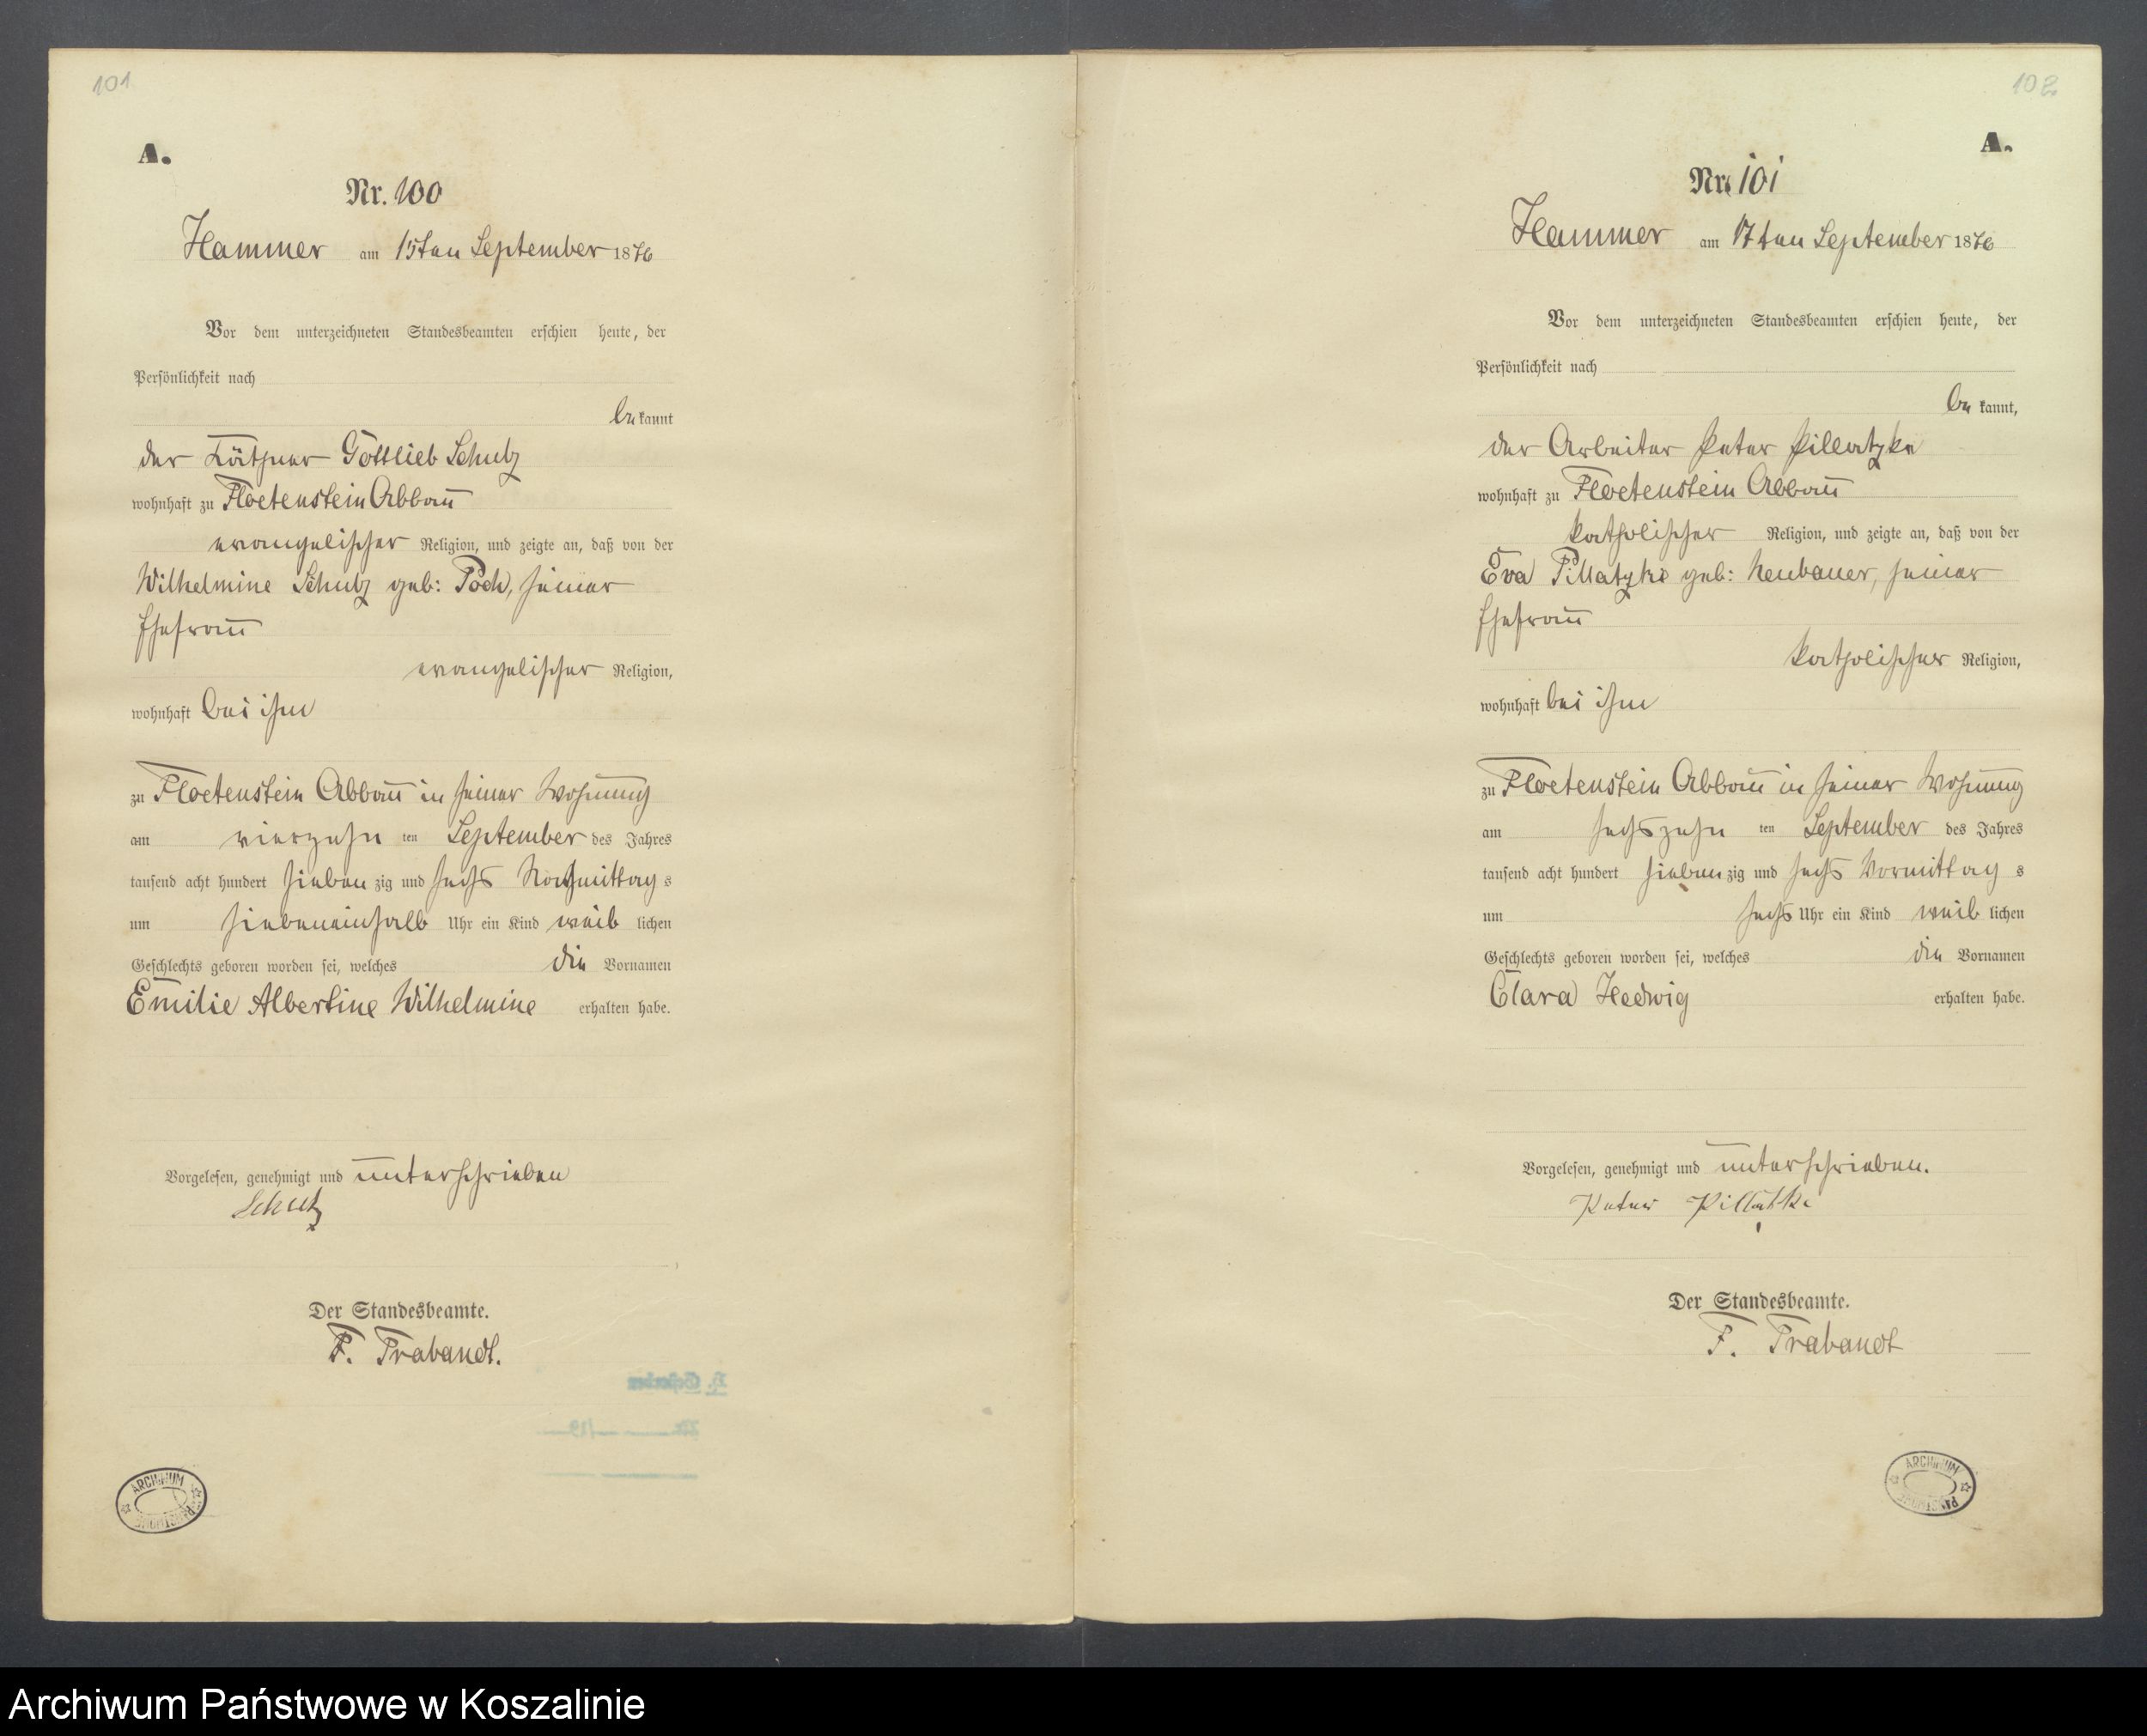 101
A.
Nr. 100
Hammer am 15ten September 1876
Vor dem unterzeichneten Standesbeamten erschien heute, der
Persönlichkeit nach
be kannt
der Käthner Gottlieb Schulz
wohnhaft zu Floetenstein Abbau
evangelischer Religion, und zeigte an, daß von der
Wilhelmine Schulz geb: Poch, seiner
Ehefrau
evangelischer Religion,
wohnhaft bei ihm
zu Floetenstein Abbau in seiner Wohnung
am vierzehn ten September des Jahres
tausend acht hundert sieben zig und sechs Nachmittag s
um siebeneinhalb Uhr ein Kind weib lichen
Geschlechts geboren worden sei, welches die Vornamen
Emilie Albertine Wilhelmine erhalten habe.
Vorgelesen, genehmigt und unterschrieben
Der Standesbeamte.
F. Trabandt.
ARCHIWUM PAŃSTWOWE
102
A.
Nr. 101
Hammer am 17ten September 1876
Vor dem unterzeichneten Standesbeamten erschien heute, der
Persönlichkeit nach
be kannt,
der Arbeiter Peter Pillatzke
wohnhaft zu Floetenstein Abbau
katholischer Religion, und zeigte an, daß von der
Eva Pillatzke geb: Neubauer, seiner
Ehefrau
katholischer Religion,
wohnhaft bei ihm
zu Floetenstein Abbau in seiner Wohnung
am sechszehn ten September des Jahres
tausend acht hundert sieben zig und sechs Vormittag s
um sechs Uhr ein Kind weib lichen
Geschlechts geboren worden sei, welches die Vornamen
Clara Hedwig erhalten habe.
Vorgelesen, genehmigt und unterschrieben.
Peter Pillatke
Der Standesbeamte.
F. Trabandt
ARCHIWUM PAŃSTWOWE
Archiwum Państwowe w Koszalinie